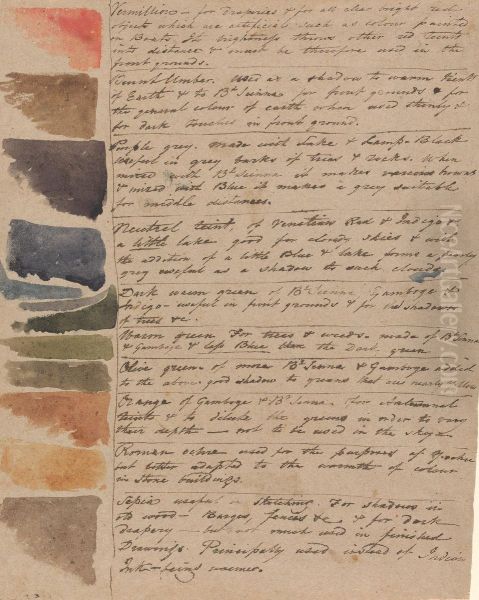 Vermillion — for draperies & for all clear bright red
objects which are artificial such as colour painted
on Boats. Its brightness throws other red tints
into distance & must be therefore used in the
front grounds.
Burnt Umber. Used as a shadow to warm tints
of Earth & to Bt Sienna for front grounds & for
the general colour of earth when used strong &
for dark touches in front ground.
Purple grey. made with Lake & Lamp-Black
useful in grey barks of trees & rocks. When
mixed with Bt Sienna it makes various browns
& mixed with Blue it makes a grey suitable
for middle distances.
Neutral teint, of Venetian Red & Indigo &
a little lake good for clouds, skies & with
the addition of a little Blue & lake forms a pearly
grey useful as a shadow to such clouds
Dark warm green of Bt Sienna Gamboge &
Indigo — useful in front grounds & for shadows
of trees &c.
Warm green For trees & weeds. made of Bt Sienna
& Gamboge & less Blue than the Dark green
Olive green of more Bt Sienna & Gamboge added
to the above good shadow to greens that are nearly yellow
Orange of Gamboge & Bt Sienna. For Autumnal
teints & to dilute the greens in order to vary
their depth — not to be used in the Skys.
Roman ochre used for the purposes of
but better adapted to the warmth of colour
in stone buildings.
Sepia useful in Sketching. For shadows in
old wood — Barges, fences &c & for dark
drapery — but not much used in finished
Drawings. Principally used instead of Indian
Ink — being warmer.